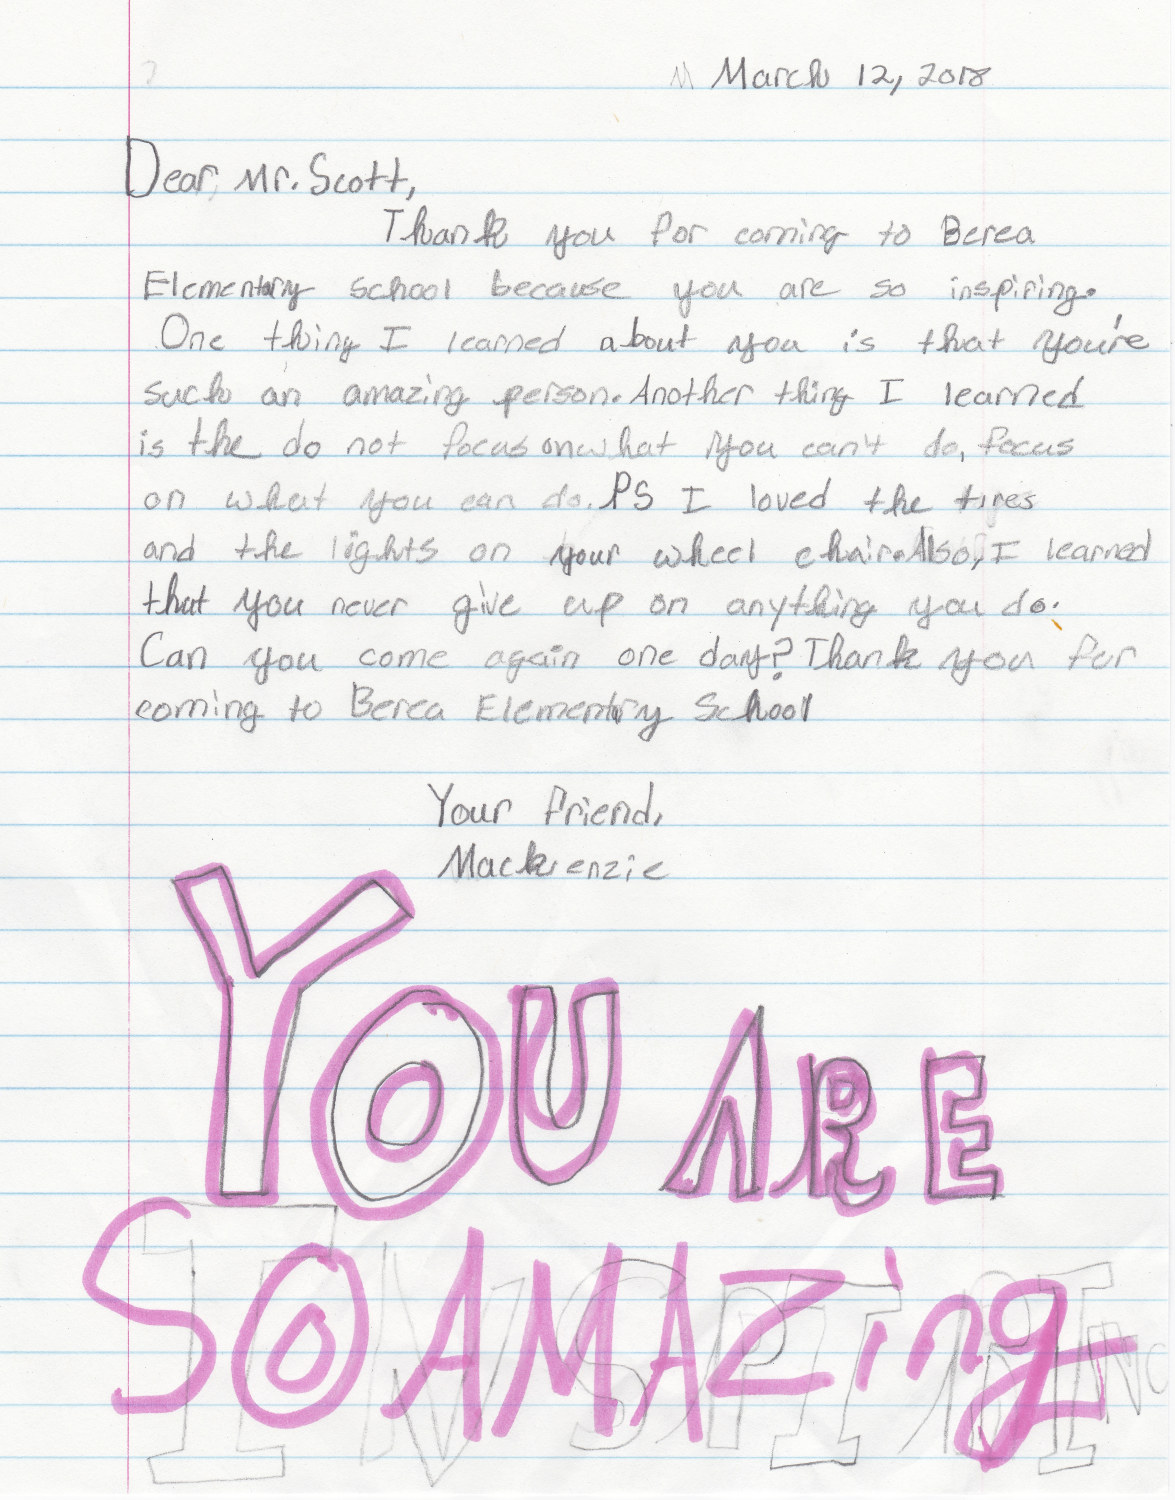 March 12, 2018
Dear, Mr. Scott,
Thank you for coming to Berea
Elementary school because you are so inspiring.
One thing I learned about you is that you're
such an amazing person. Another thing I learned
is the do not focus on what you can't do, focus
on what you can do. PS I loved the tires
and the lights on your wheel chair. Also, I learned
that you never give up on anything you do.
Can you come again one day? Thank you for
coming to Berea Elementary School
Your friend,
Mackenzie
YOU ARE
SO AMAZing
INSPIRING